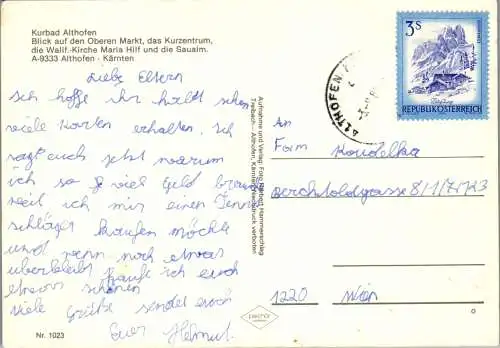 Kurbad Althofen
Blick auf den Oberen Markt, das Kurzentrum,
die Wallf.-Kirche Maria Hilf und die Saualm.
A-9333 Althofen - Kärnten
Liebe Eltern
Ich hoffe ihr habt schon
viele Karten erhalten. Ich
sag euch jetzt warum
ich so viel Geld brauche
weil ich mir einen Tennis
schläger kaufen möchte
und wenn noch etwas
überbleibt kaufe ich euch
etwas schönes
Viele Grüße sendet euch
Euer Helmut.
Nr. 1023
Aufnahme und Verlag: Foto
Treibach - Althofen, Kärnten, Nachdruck verboten
ALTHOFEN
3S
REPUBLIK ÖSTERREICH
An
Fam Koudelka
8/1/7/23
1220 Wien